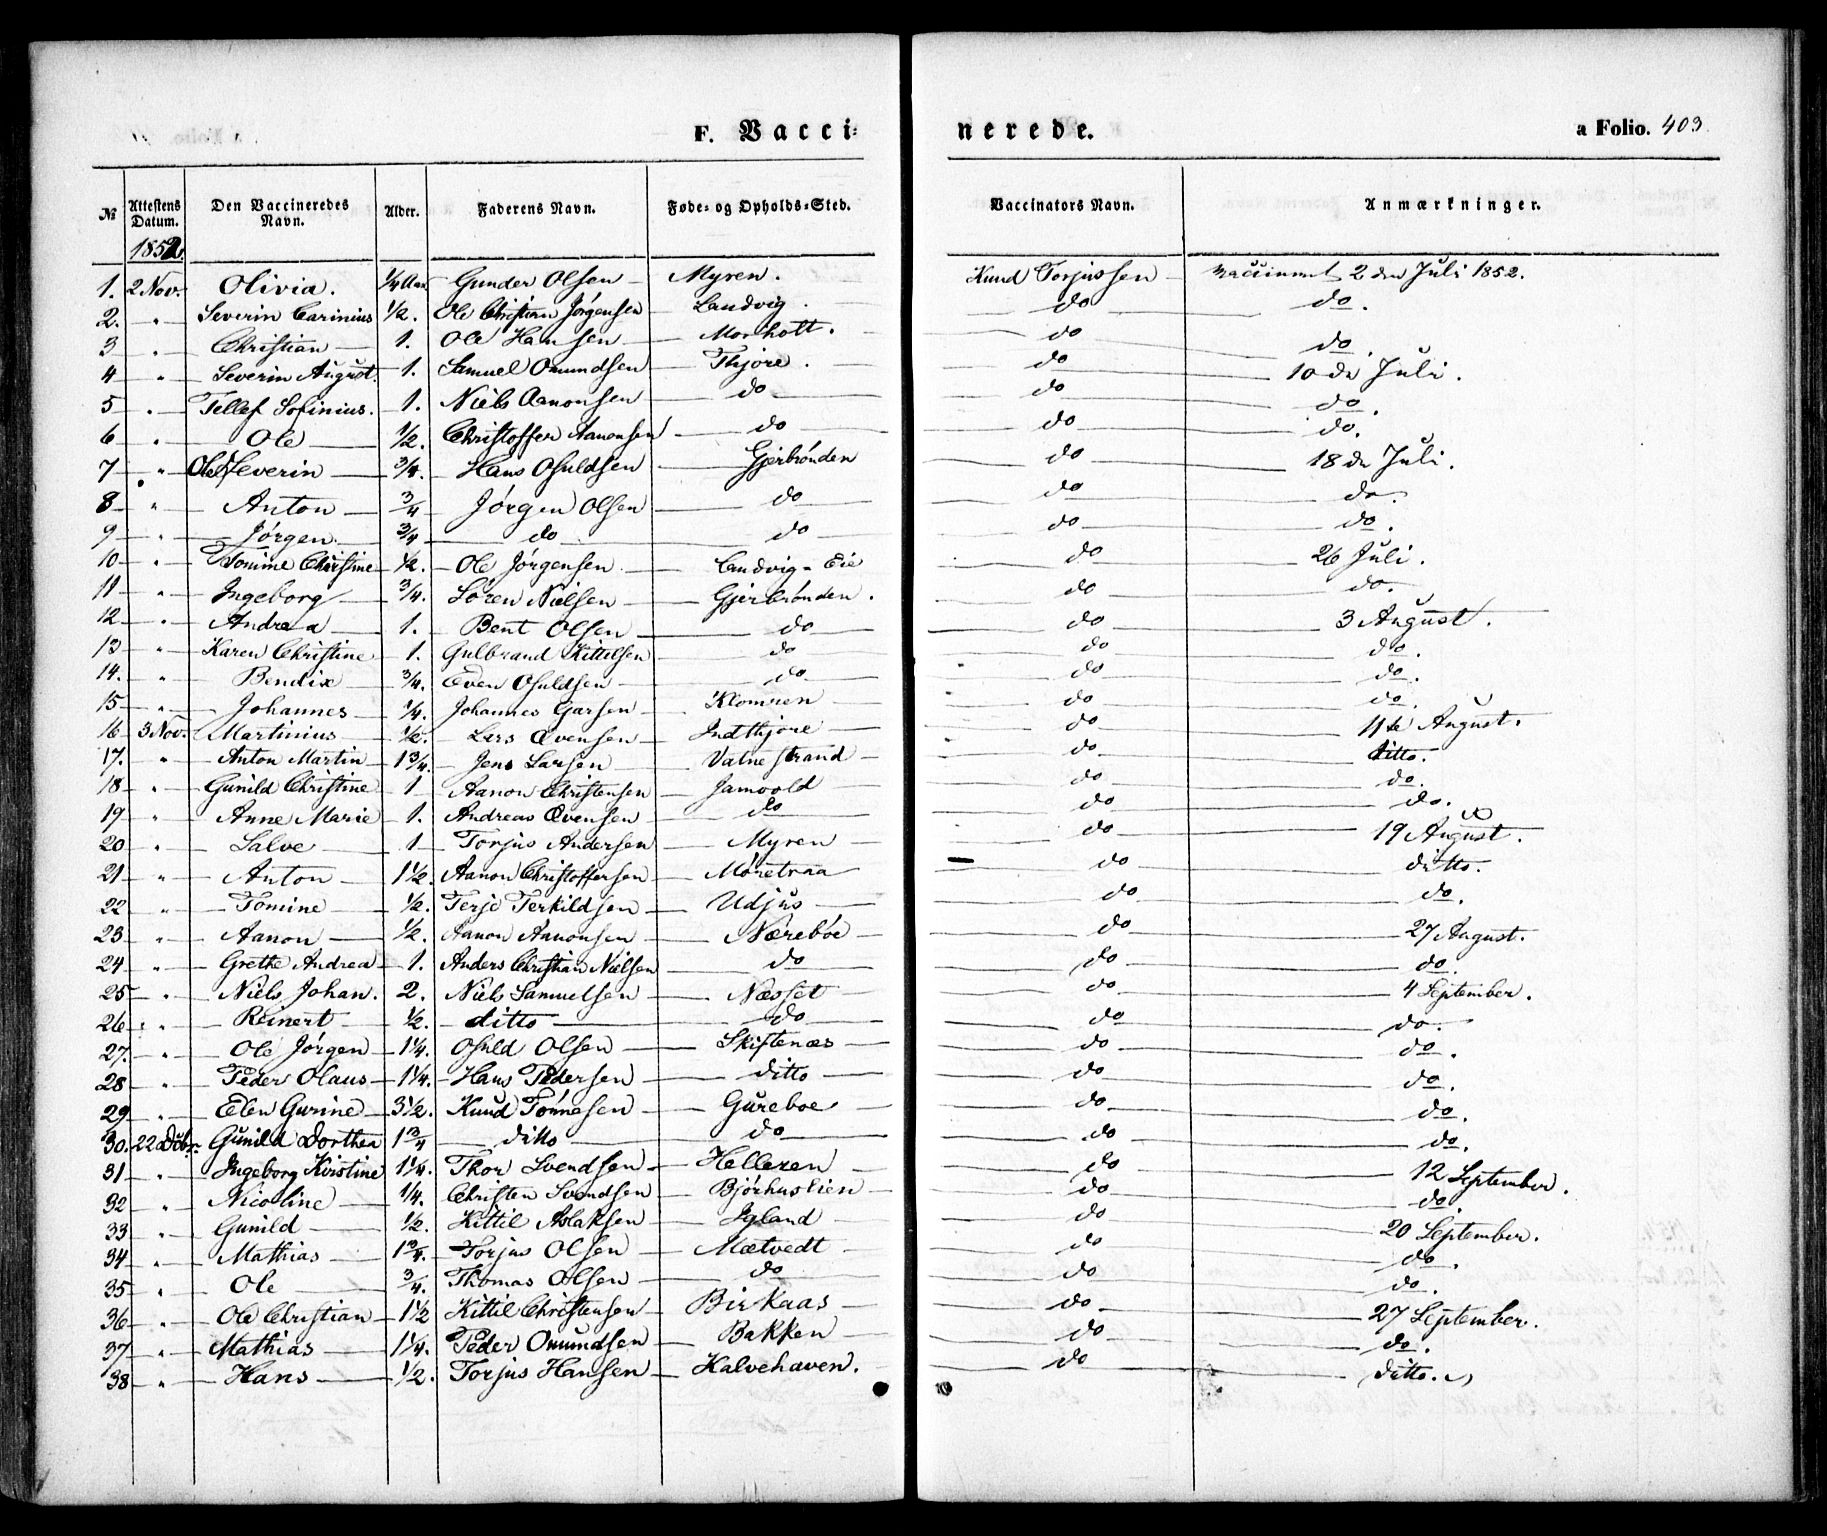 F. Vacci= nerede. a Folio. 403.
№ Attestens Datum. Den Vaccineredes Navn. Alder. Faderens Navn. Føde- og Opholds-Sted. Vaccinators Navn. Anmærkninger.
1852.
1. 2 Nov. Olivia. 1/4 Aar. Gunder Olsen Myren. Knud Torjussen vaccineret 2den Juli 1852.
2. " Severin Carinius 1/2. Ole Christian Jørgensen Landvig. do do.
3 " Christian 1. Ole Hansen Morholt. do do.
4 " Severin August. 1. Samuel Omundsen Thjøre. do 10de Juli.
5 " Tellef Sofinius. 1. Niels Aanonsen do do do.
6 " Ole 1/2. Christoffer Aanonsen do do do.
7 " Ole Severin 3/4. Hans Osuldsen Gjerbrønden do 18de Juli.
8 " Anton 3/4 Jørgen Olsen do do do.
9 " Jørgen. 3/4 do do do do.
10 " Tomine Christine 1/2. Ole Jørgensen Landvig-Eie do 26 Juli.
11 " Ingeborg 3/4. Søren Nielsen Gjerbrønden. do do.
12 " Andrea 1. Bent Olsen do do 3 August.
13 " Karen Christine 1. Gulbrand Kittelsen do do do.
14. " Bendix 3/4. Even Osuldsen do do do.
15 " Johannes 1/4. Johannes Garsen Klomren do do.
16 3 Nov. Martinius 1/2. Lars Evensen Indthjøre do 11te August.
17. " Anton Martin 1 3/4. Jens Larsen Vatnestrand do ditto.
18 " Gunild Christine 1 Aanon Christensen Jamvold do do.
19 " Anne Marie 1. Andreas Evensen do do do.
20 " Salve 1 Torjus Andersen Myren do 19 August.
21 " Anton 1 1/2. Aanon Christoffersen Mønetraa do ditto.
22 " Tomine 1/2. Terje Terkildsen Udjus do do.
23 " Aanon 1/2. Aanon Aanonsen Nærebøe do 27 August.
24 " Grethe Andrea 1. Anders Christian Nielsen do do do.
25 " Niels Johan. 2. Niels Samuelsen Næsset do 4 September.
26 " Reinert 1/2. ditto do do do.
27. " Ole Jørgen 1 1/4. Osuld Olsen Skiftenæs do do.
28 " Peder Olaus 1 1/4. Hans Pedersen ditto do do.
29 " Elen Gurine 3 1/2. Knud Tønnesen Gureboe do do.
30. 22 Dcbr. Gunild Dorthea 1 3/4 ditto do do do.
31 " Ingeborg Kristine 1 1/4. Thor Svendsen Helleren do 12 September.
32 " Nicoline 1/4. Christen Svendsen Bjørhuslien do do.
33 " Gunild 1/2. Kittil Aslaksen Igland do 20 September.
34 " Mathias 1 3/4. Torjus Olsen Mætvedt do do.
35 " Ole 3/4. Thomas Olsen do do do.
36 " Ole Christian 1 1/2 Kittil Christensen Birkaas do 27 September.
37 " Mathias 1 1/4. Peder Omundsen Bakken do do.
38 " Hans 1/2. Torjus Hansen Kalvehaven. do ditto.